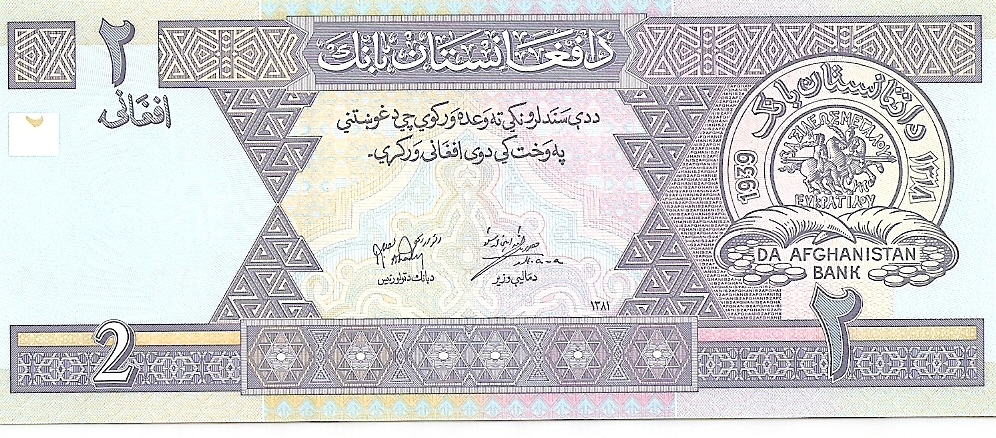 د افغانستان بانک
۲
افغانۍ
ددې سند لرونکي ته وعده ورکوي چې د غوښتنې
په وخت کې دوې افغانۍ ورکړي.
د افغانستان بانک
۱۳۱۸
1939
ΒΑΣΙΛΕΩΣ ΜΕΓΑΛΟΥ
ΕΥΚΡΑΤΙΔΟΥ
DA AFGHANISTAN
BANK
د بانک د ټولو رئیس
د مالیې وزیر
۱۳۸۱
2
۲